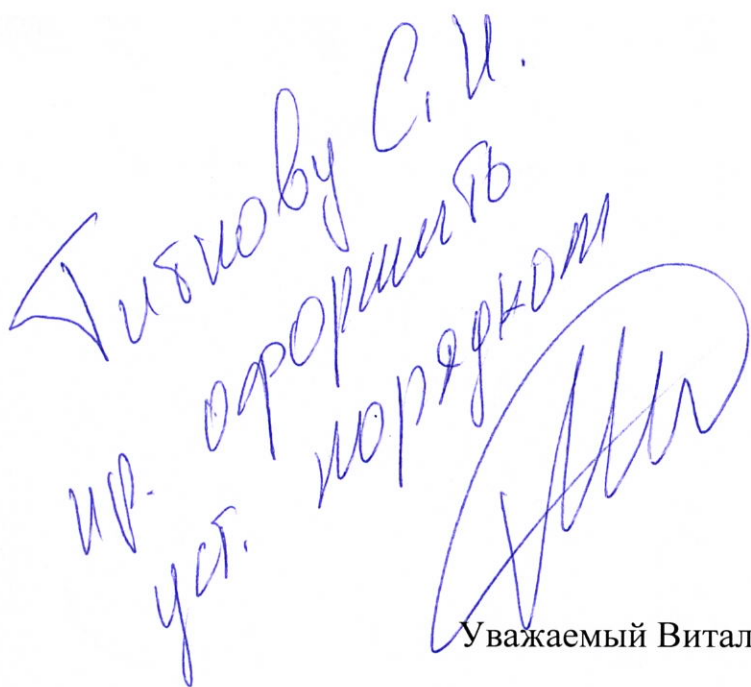 Титкову С.И.
пр. оформить
уст. порядком
Уважаемый Витал